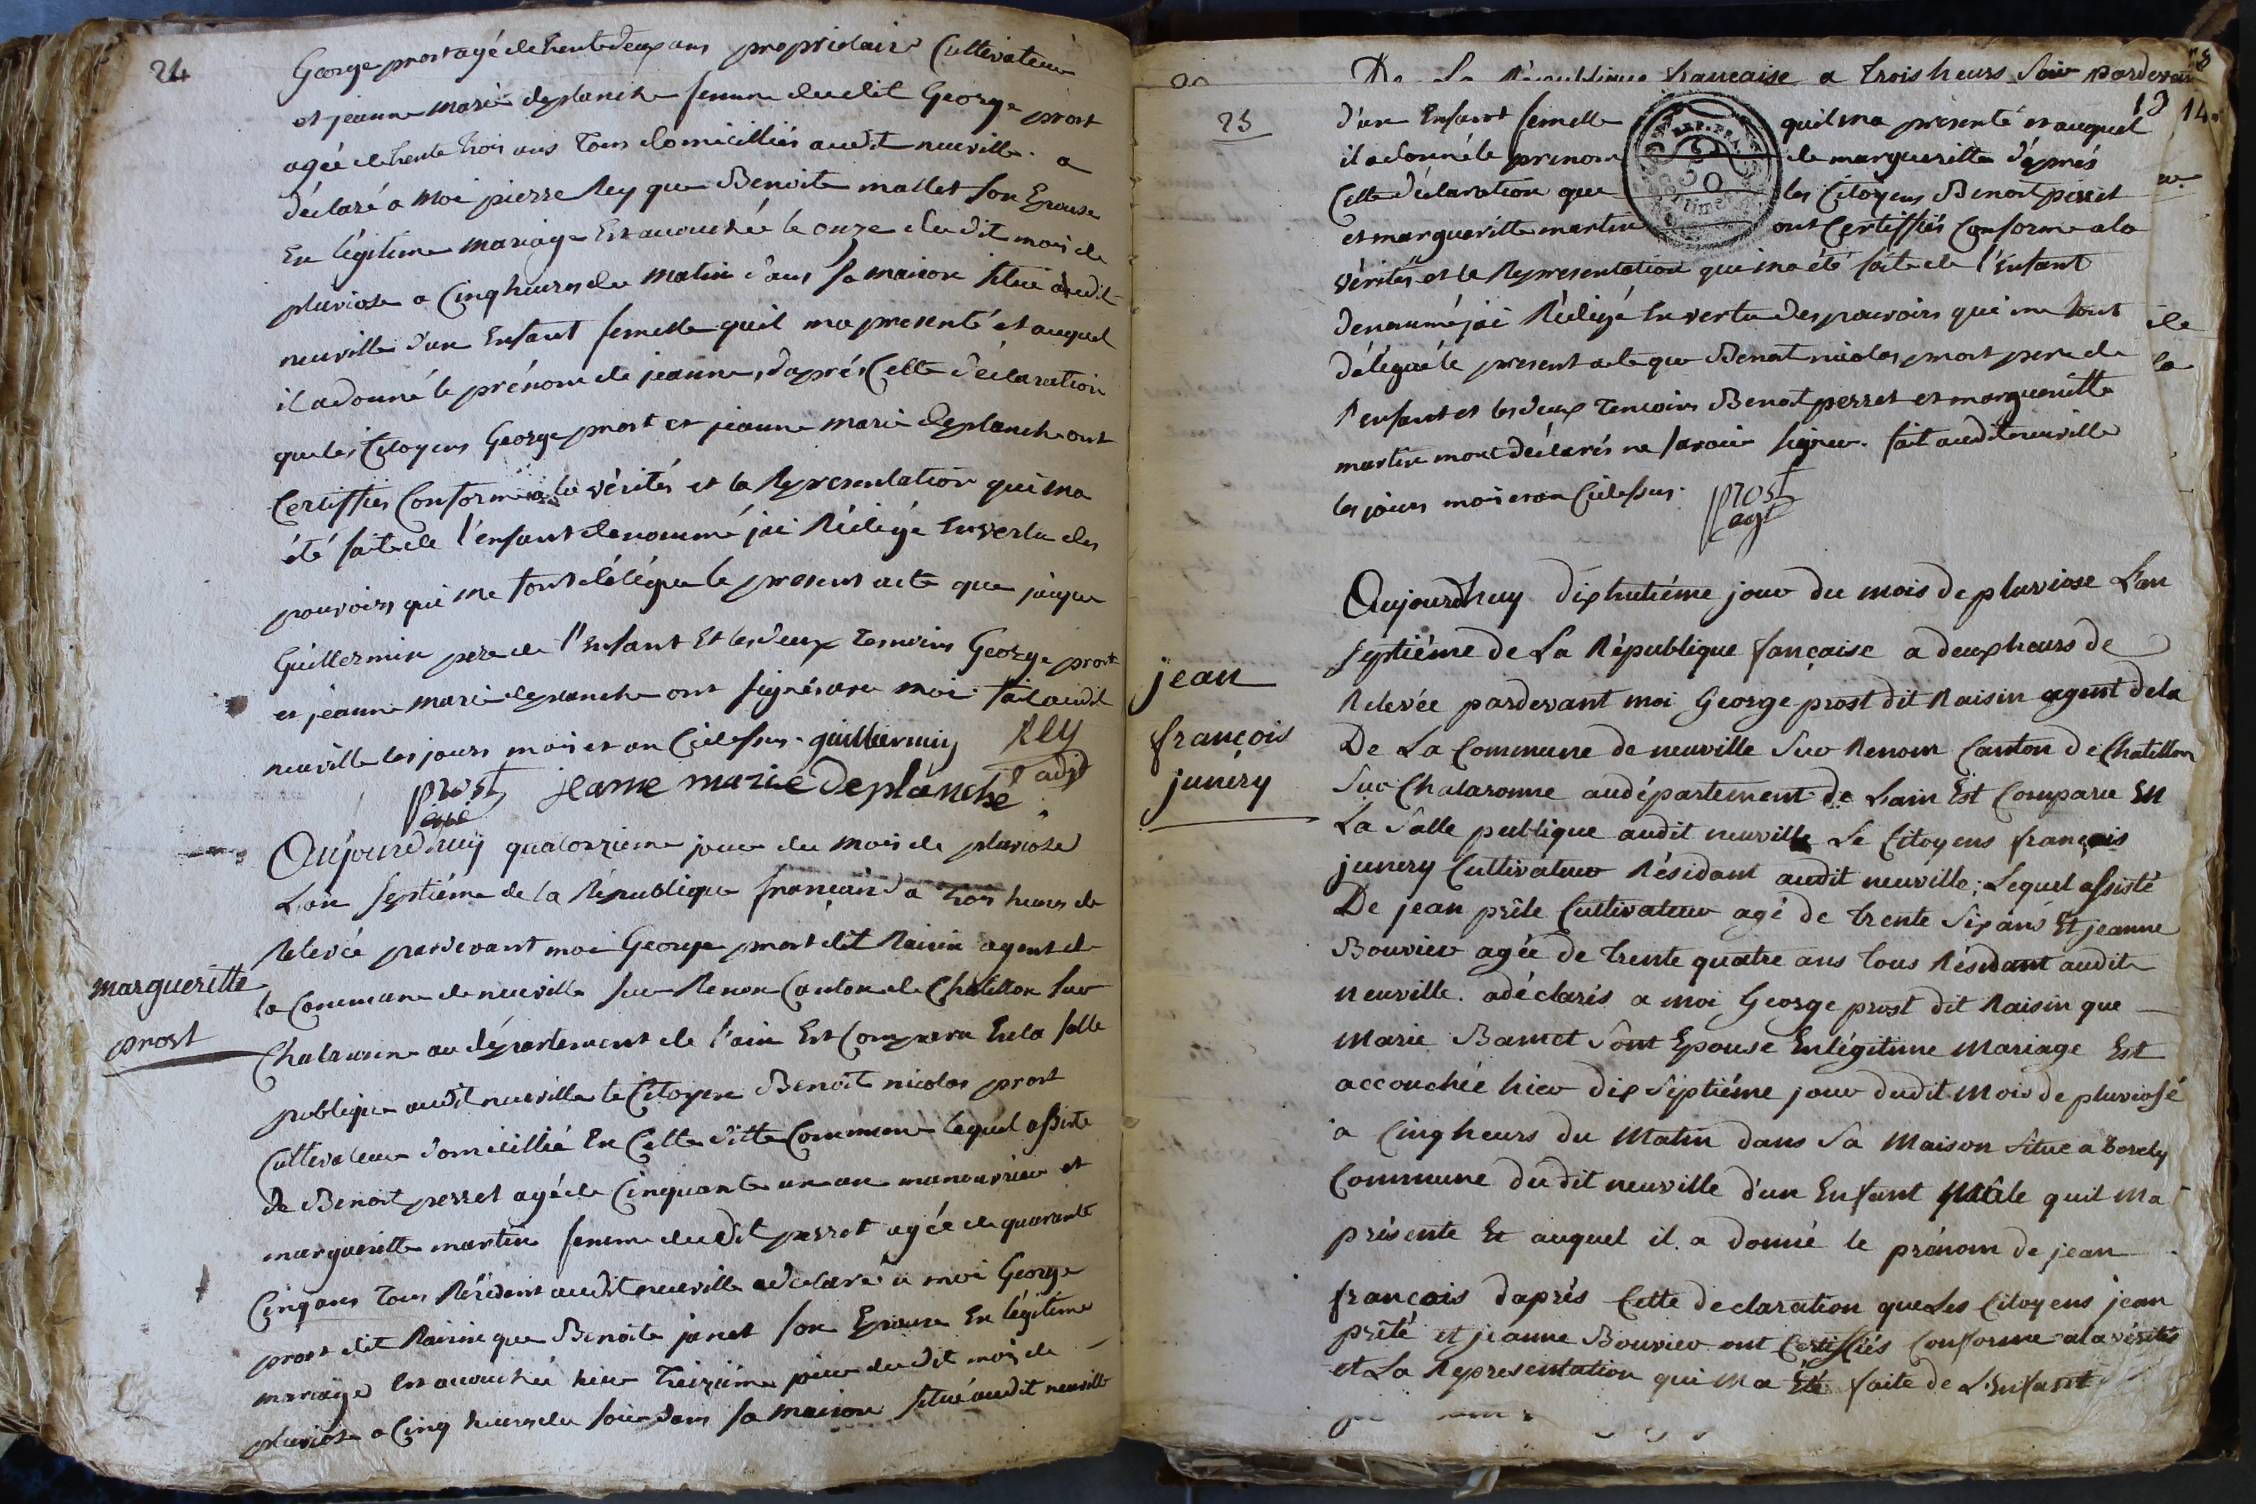 24
George prost agé de trente deux ans propriétaire Cultivateur
et jeanne marie deplanche femme dudit George prost
agée de trente trois ans tous domicilliés audit neuville. a
déclaré a moi pierre Rey que Benoite mallet son Epouse
En légitime mariage Est accouchée le onze dudit mois de
pluviose a Cinq heures du matin dans sa maison situé audit
neuville d'un Enfant femelle quil ma presenté et auquel
il a donné le prénom de jeanne, d'aprés Cette déclaration
que les Citoyens George prost et jeanne marie deplanche ont
Certiffiés Conforme a la vérités et la Representation qui ma
été faite de l'enfant denommé jai Rédigé En vertu des
pouvoirs qui me sont délégué le present acte que jaque
Guillermin pere de l'Enfant Et les deux temoins George prost
et jeanne marie deplanche ont signés avec moi. fait audit
neuville les jours mois et an Cidessus. guillermin Rey
prost jeanne marie Deplanche adjt
agt
Aujourdhuy quatorzieme jour du mois de pluviose
Lan septiéme de la République française a trois heures de
Relevée pardevant moi George prost dit Raisin agent de
margueritte
la Commune de neuville sur Renon Canton de Chatillon sur
prost
Chalaronne au département de l'ain Est Comparu En la salle
publique audit neuville le Citoyen Benoit nicolas prost
Cultivateur domicillié En Cette ditte Commune lequel assisté
de Benoit perret agé de Cinquante un an manouvrier et
margueritte martin femme dudit perret agée de quarante
Cinq ans tous Résidant audit neuville a déclaré a moi George
prost dit Raisin que Benoite janet son Epouse En légitime
mariage Est accouchée hier treiziéme jour dudit mois de
pluviose a Cinq heures du soir dans sa maison situé audit neuville
De La République française a trois heurs soir pardevant
13 14
25
d'un Enfant femelle quil ma présenté et auquel
il a donné le prenom de margueritte d'aprés
Cette déclaration que les Citoyens Benoit perret
et margueritte martin ont Certiffiés Conforme a la
vérités et la Representation qui ma été faite de l'Enfant
denommé jai Rédigé En vertu des pouvoirs qui me sont
délégué le present acte que Benoit nicolas prost pere de
l'enfant et les deux temoins Benoit perret et margueritte
martin mont déclarés ne savoir signer. fait audit neuville
les jours mois et an Cidessus. prost
agt
Aujourdhuy dixhutiéme jour du mois de pluviose L'an
septiéme de La République fançaise a deux heurs de
jean
Relevée pardevant moi George prost dit Raisin agent dela
françois
De La Commune de neuville sur Renom Canton de Chatillon
junery
sur Chalaronne audépartement de Lain Est Comparu En
La salle publique audit neuville Le Citoyens françois
junery Cultivateur Résidant audit neuville; Lequel assisté
De jean prîte Cultivateur agé de trente six ans Et jeanne
Bouvier agée de trente quatre ans tous Résidant audit
neuville. adéclarés a moi George prost dit Raisin que
Marie Bamet sont Epouse Enlégitime Mariage Est
accouchée hier dix septiéme jour dudit mois de pluviosé
a Cinq heurs du Matin dans sa Maison situe a
Commune dudit neuville d'un Enfant Mâle quil ma
présente Et auquel il a donné le prénom de jean
françois daprés Cette declaration queLes Citoyens jean
prîte et jeanne Bouvier ont Certiffiés Conforme ala vérités
et La Representation qui Ma Été faite de L'Enfant